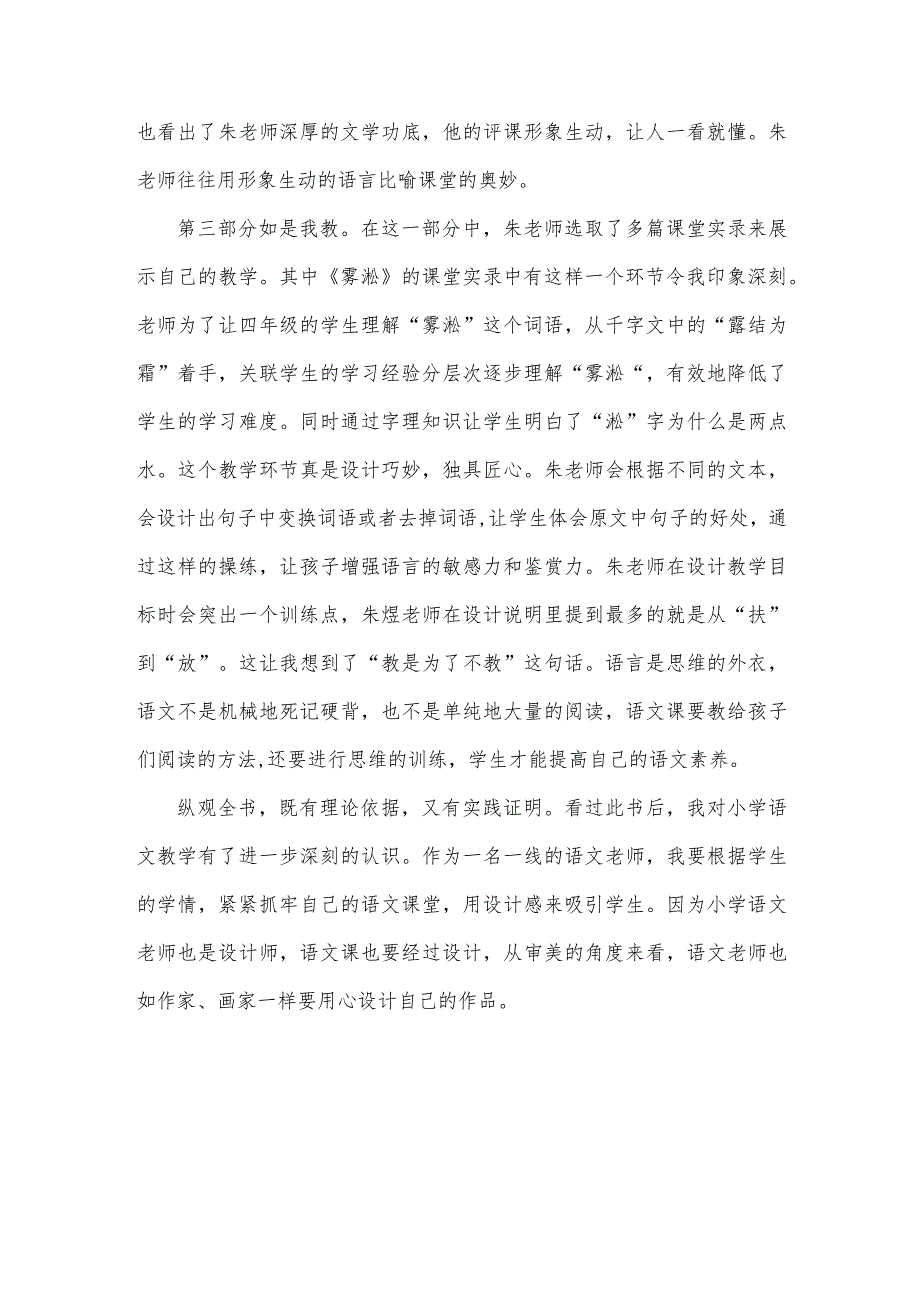 也看出了朱老师深厚的文学功底，他的评课形象生动，让人一看就懂。朱
老师往往用形象生动的语言比喻课堂的奥妙。
第三部分如是我教。在这一部分中，朱老师选取了多篇课堂实录来展
示自己的教学。其中《雾淞》的课堂实录中有这样一个环节令我印象深刻。
老师为了让四年级的学生理解“雾淞”这个词语，从千字文中的“露结为
霜”着手，关联学生的学习经验分层次逐步理解“雾淞“，有效地降低了
学生的学习难度。同时通过字理知识让学生明白了“淞”字为什么是两点
水。这个教学环节真是设计巧妙，独具匠心。朱老师会根据不同的文本，
会设计出句子中变换词语或者去掉词语,让学生体会原文中句子的好处，通
过这样的操练，让孩子增强语言的敏感力和鉴赏力。朱老师在设计教学目
标时会突出一个训练点，朱煜老师在设计说明里提到最多的就是从“扶”
到“放”。这让我想到了“教是为了不教”这句话。语言是思维的外衣，
语文不是机械地死记硬背，也不是单纯地大量的阅读，语文课要教给孩子
们阅读的方法,还要进行思维的训练，学生才能提高自己的语文素养。
纵观全书，既有理论依据，又有实践证明。看过此书后，我对小学语
文教学有了进一步深刻的认识。作为一名一线的语文老师，我要根据学生
的学情，紧紧抓牢自己的语文课堂，用设计感来吸引学生。因为小学语文
老师也是设计师，语文课也要经过设计，从审美的角度来看，语文老师也
如作家、画家一样要用心设计自己的作品。